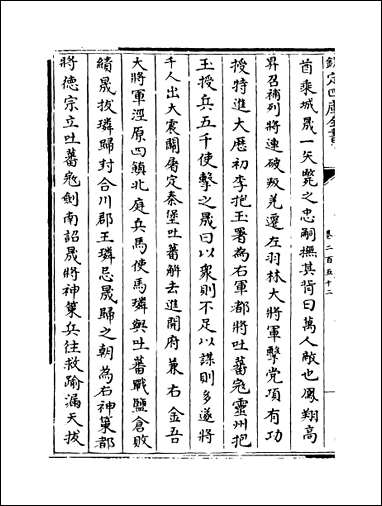 欽定四庫全書
卷二百五十二
酋乘城晟一矢斃之忠嗣撫其背曰萬人敵也鳳翔高
昇召補列將連破叛羌遷左羽林大將軍擊党項有功
授特進大厯初李抱玉署為右軍都將吐蕃㓂靈州抱
玉授兵五千使擊之晟曰以衆則不足以謀則多遂將
千人出大震關屠定秦堡吐蕃解去進開府兼右金吾
大將軍涇原四鎮北庭兵馬使馬璘與吐蕃戰鹽倉敗
績晟拔璘歸封合川郡王璘忌晟歸之朝為右神策都
將德宗立吐蕃㓂劍南詔晟將神策兵往救踰漏天拔